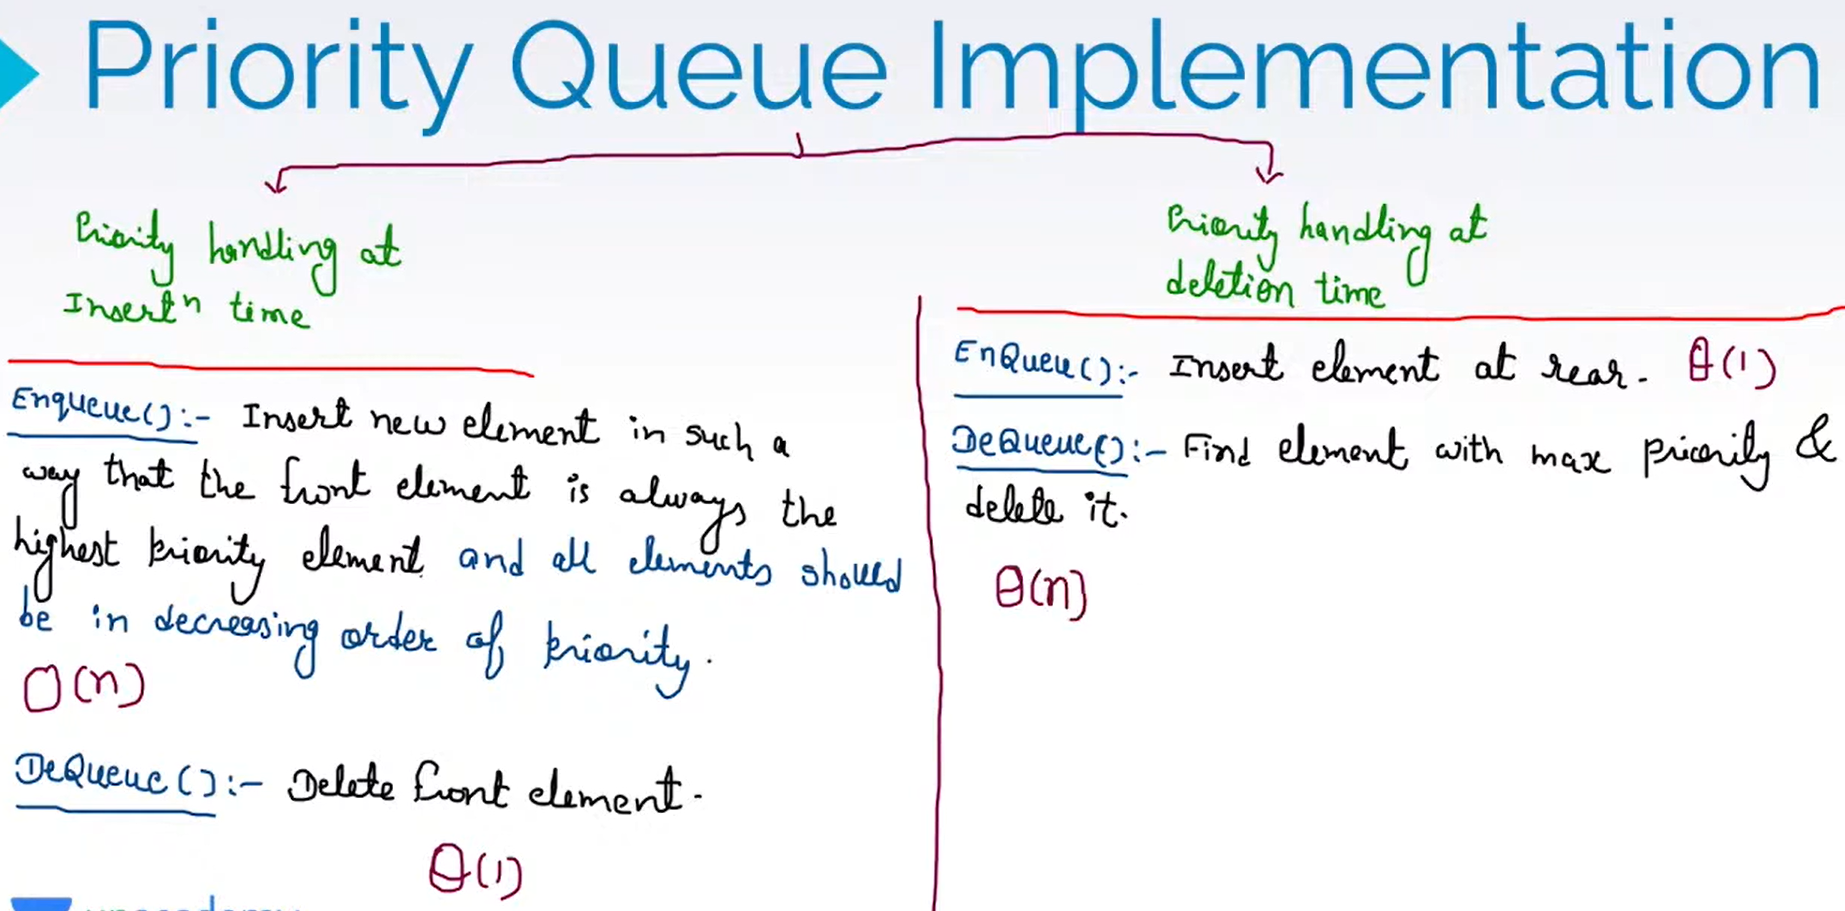 Priority Queue Implementation
Priority handling at
Insertⁿ time
Enqueue():- Insert new element in such a
way that the front element is always the
highest priority element and all elements should
be in decreasing order of priority.
O(n)
DeQueue():- Delete front element.
θ(1)
Priority handling at
deletion time
EnQueue():- Insert element at rear. θ(1)
DeQueue():- Find element with max priority &
delete it.
θ(n)